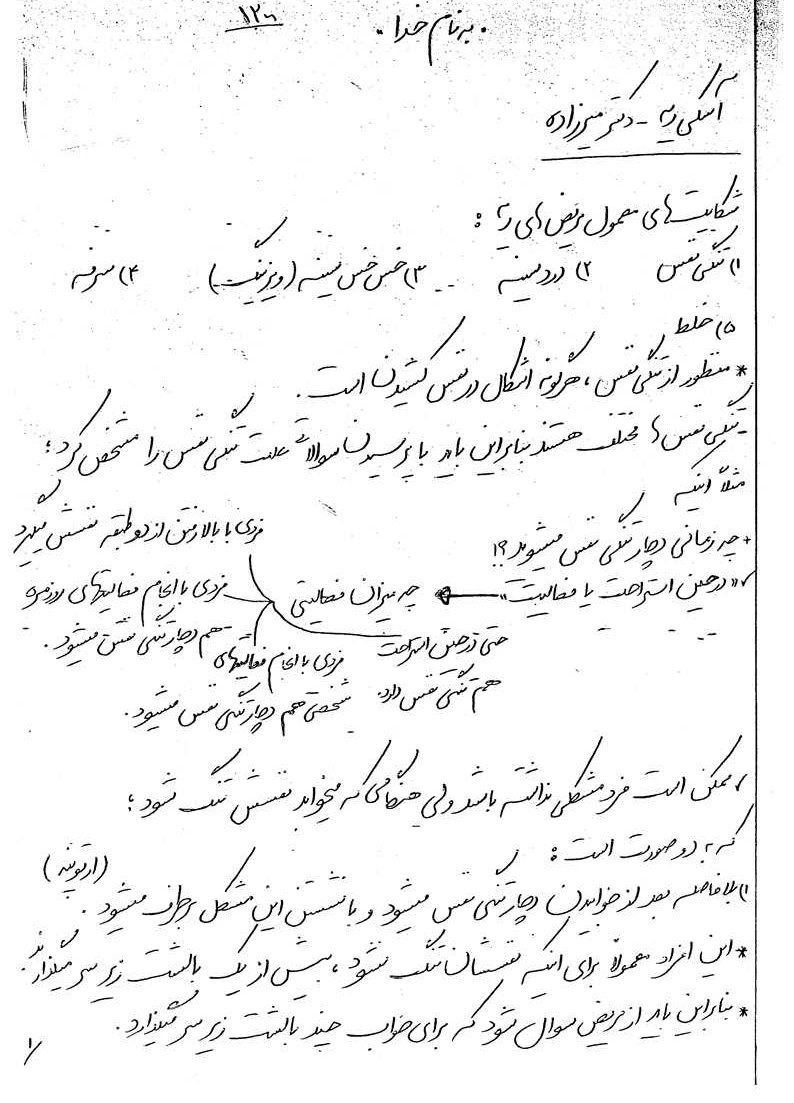 ۱۲۰
۰ به نام خدا ۰
اسکی ریه - دکتر میرزاده
شکایت‌های معمول مریض‌های ریه :
۱) تنگی نفس ۲) درد سینه ۳) خس خس سینه (ویزینگ) ۴) سرفه
۵) خلط
* منظور از تنگی نفس ، هرگونه اشکال در نفس کشیدن است .
- تنگی نفس ها مختلف هستند بنابراین باید با پرسیدن سوالات علت تنگی نفس را مشخص کرد ؛
مثلاً اینکه
+ چه زمانی دچار تنگی نفس میشوید ؟!
✓ «در حین استراحت یا فعالیت» ← چه میزان فعالیتی
فردی با بالا رفتن از دو طبقه نفسش میگیرد
فردی با انجام فعالیتهای روزمره
هم دچار تنگی نفس میشود .
فردی با انجام فعالیتهای
شخصی هم دچار تنگی نفس میشود .
حتی در حین استراحت
هم تنگی نفس دارد .
✓ ممکن است فرد مشکلی نداشته باشد ولی هنگامی که میخوابد نفسش تنگ شود ؛
که به دو صورت است :
۱) بلافاصله بعد از خوابیدن دچار تنگی نفس میشود و با نشستن این مشکل برطرف میشود . (ارتوپنه)
* این افراد معمولاً برای اینکه نفسشان تنگ نشود ، بیش از یک بالشت زیر سر میگذارند .
* بنابراین باید از مریض سوال شود که برای خواب چند بالشت زیر سر میگذارد .
۱/